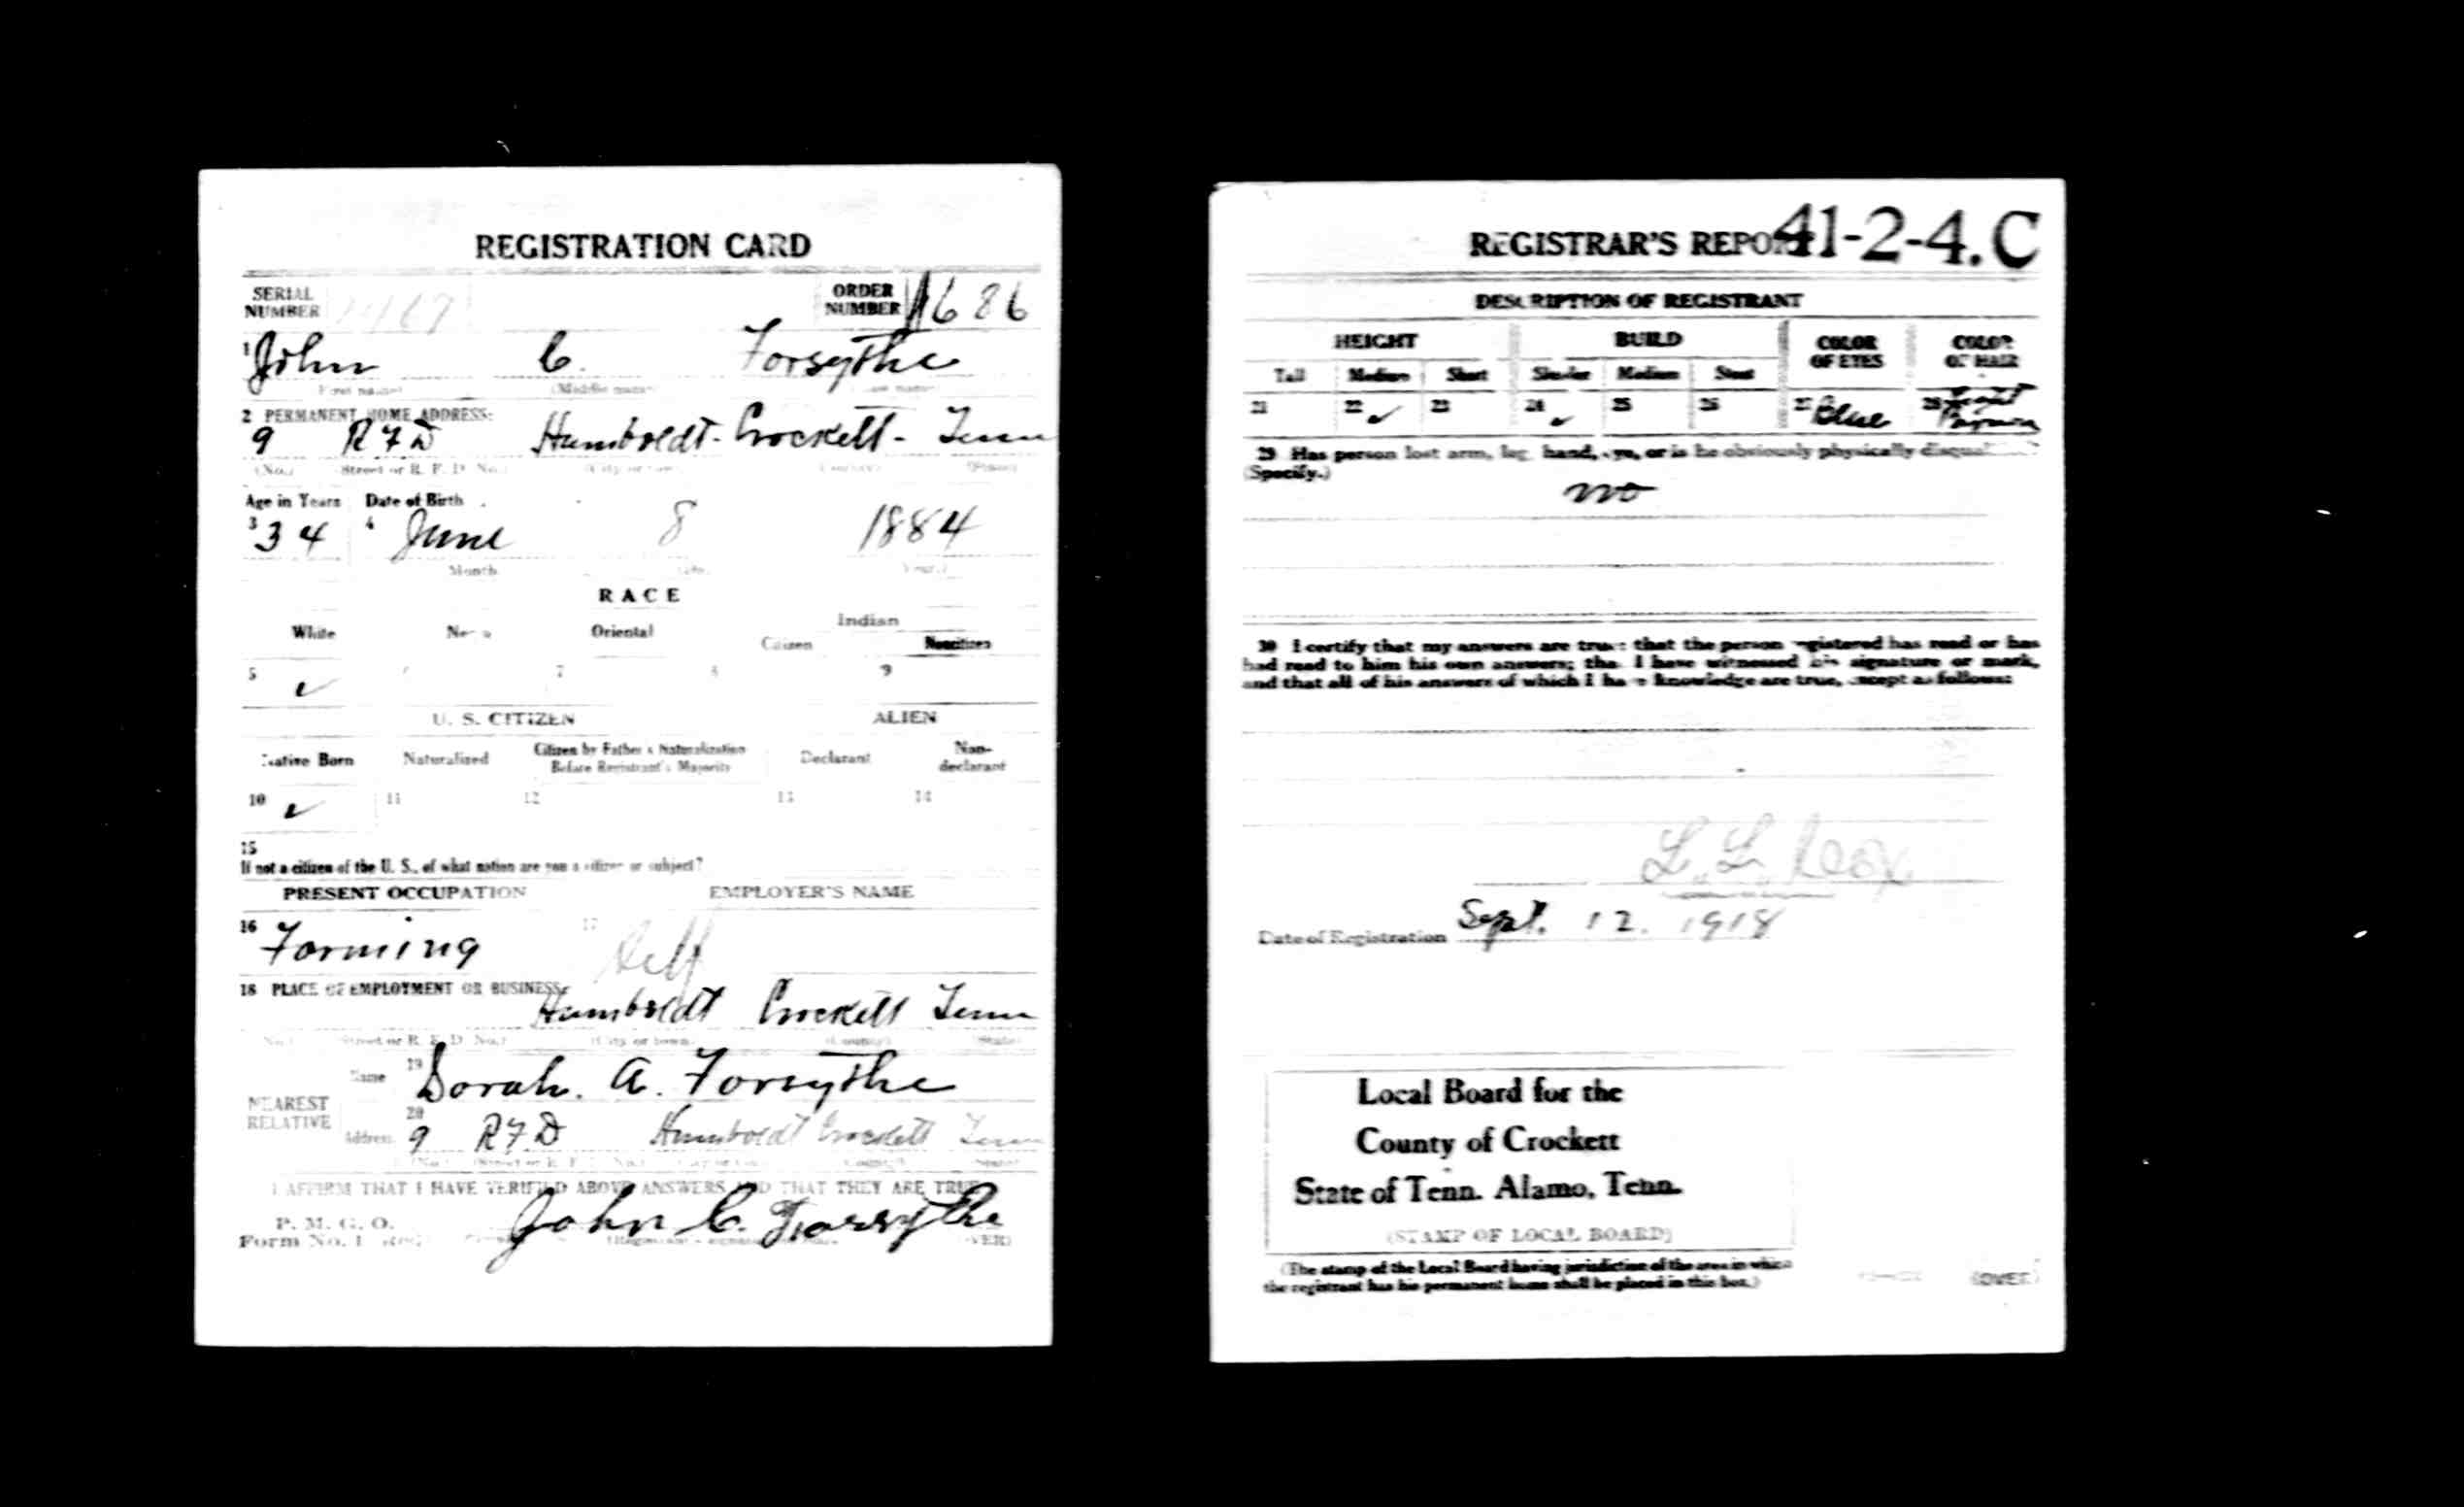 REGISTRATION CARD
SERIAL NUMBER
ORDER NUMBER 1686
1 John C. Forsythe
(First name) (Middle name) (Last name)
2 PERMANENT HOME ADDRESS:
9 R7D Humboldt- Crockett- Tenn
(No.) Street or R. F. D. No.) (City or town)
Age in Years Date of Birth
3 34 4 June 8 1884
Month Year.)
RACE
White Oriental Indian
Citizen Noncitizen
5 ✓ 7 9
U. S. CITIZEN ALIEN
Native Born Naturalized Citizen by Father's Naturalization Before Registrant's Majority Declarant Non-declarant
10 ✓ 11 12 13 14
15
If not a citizen of the U. S., of what nation are you a citizen or subject?
PRESENT OCCUPATION EMPLOYER'S NAME
16 Farming 17 Self
18 PLACE OF EMPLOYMENT OR BUSINESS:
Humboldt Crockett Tenn
(No.) Street or R. F. D. No.) (City or town) (County) (State)
NEAREST RELATIVE
Name 19 Dorah. A. Forsythe
Address 20 9 R7D Humboldt Crockett Tenn
I AFFIRM THAT I HAVE VERIFIED ABOVE ANSWERS AND THAT THEY ARE TRUE
P. M. G. O.
Form No. 1 John C. Forsythe (OVER)
REGISTRAR'S REPORT 41-2-4.C
DESCRIPTION OF REGISTRANT
HEIGHT BUILD COLOR OF EYES COLOR OF HAIR
Tall Medium Short Slender Medium Stout
21 22 ✓ 23 24 ✓ 25 26 27 Blue 28 Light
29 Has person lost arm, leg, hand, eye, or is he obviously physically disqualified?
(Specify.)
no
30 I certify that my answers are true; that the person registered has read or has
had read to him his own answers; that I have witnessed his signature or mark,
and that all of his answers of which I have knowledge are true, except as follows:
L. L. Cox
Date of Registration Sept. 12. 1918
Local Board for the
County of Crockett
State of Tenn. Alamo, Tenn.
(STAMP OF LOCAL BOARD)
(The stamp of the Local Board having jurisdiction of the area in which
the registrant has his permanent home shall be placed in this box.)
(OVER)